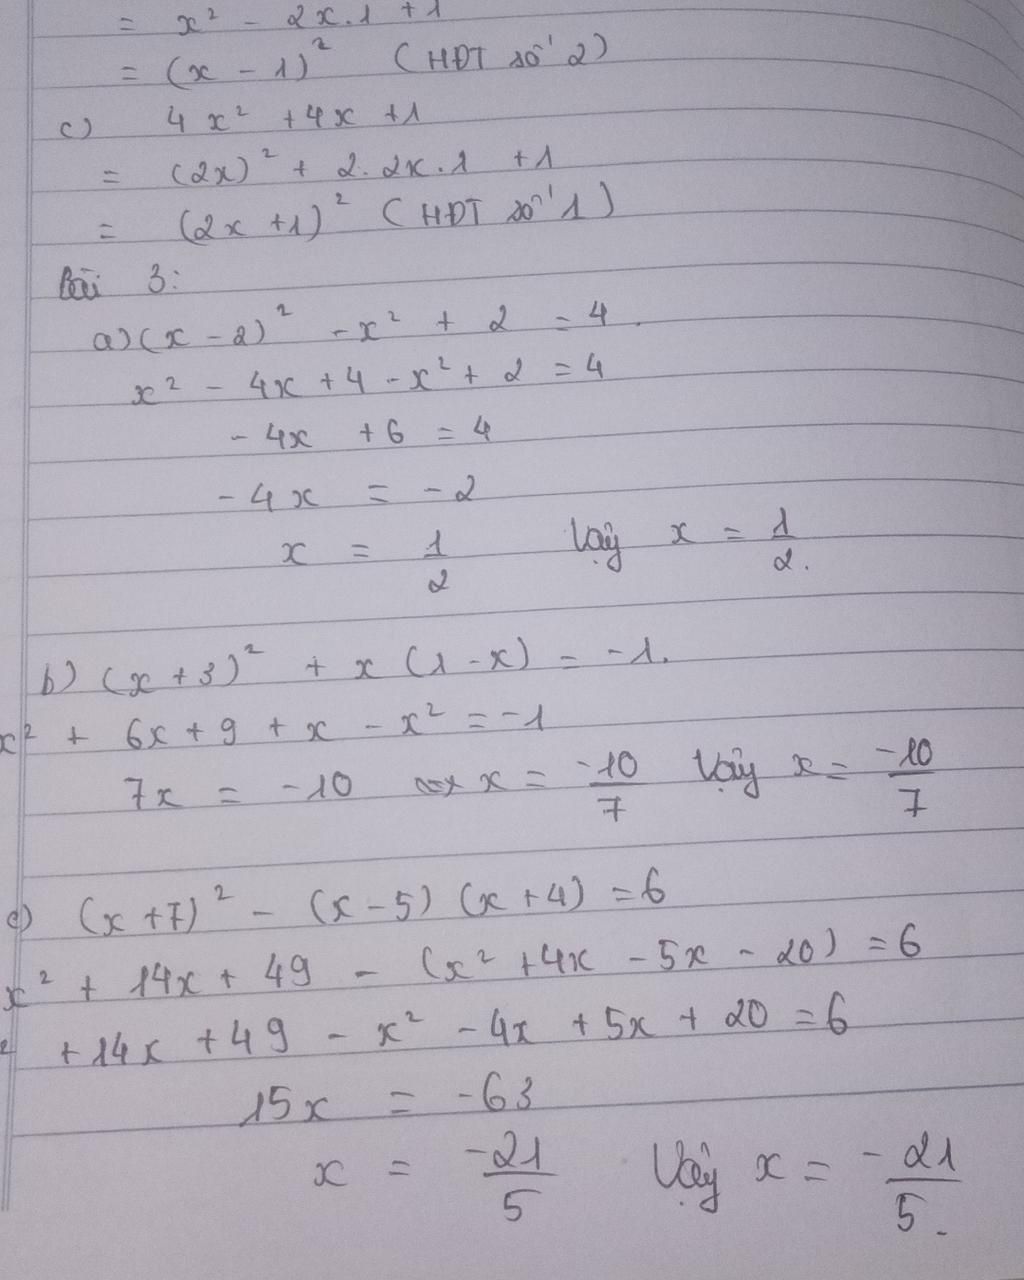 = x² - 2x.1 + 1
= (x - 1)² (HĐT số 2)
c) 4x² + 4x + 1
= (2x)² + 2.2x.1 + 1
= (2x + 1)² (HĐT số 1)
Bài 3:
a) (x - 2)² - x² + 2 = 4.
x² - 4x + 4 - x² + 2 = 4
- 4x + 6 = 4
- 4x = - 2
x = 1/2 Vậy x = 1/2.
b) (x + 3)² + x (1 - x) = -1.
x² + 6x + 9 + x - x² = -1
7x = -10 x = -10/7 Vậy x = -10/7
c) (x + 7)² - (x - 5) (x + 4) = 6
x² + 14x + 49 - (x² + 4x - 5x - 20) = 6
+ 14x + 49 - x² - 4x + 5x + 20 = 6
15x = -63
x = -21/5 Vậy x = -21/5.